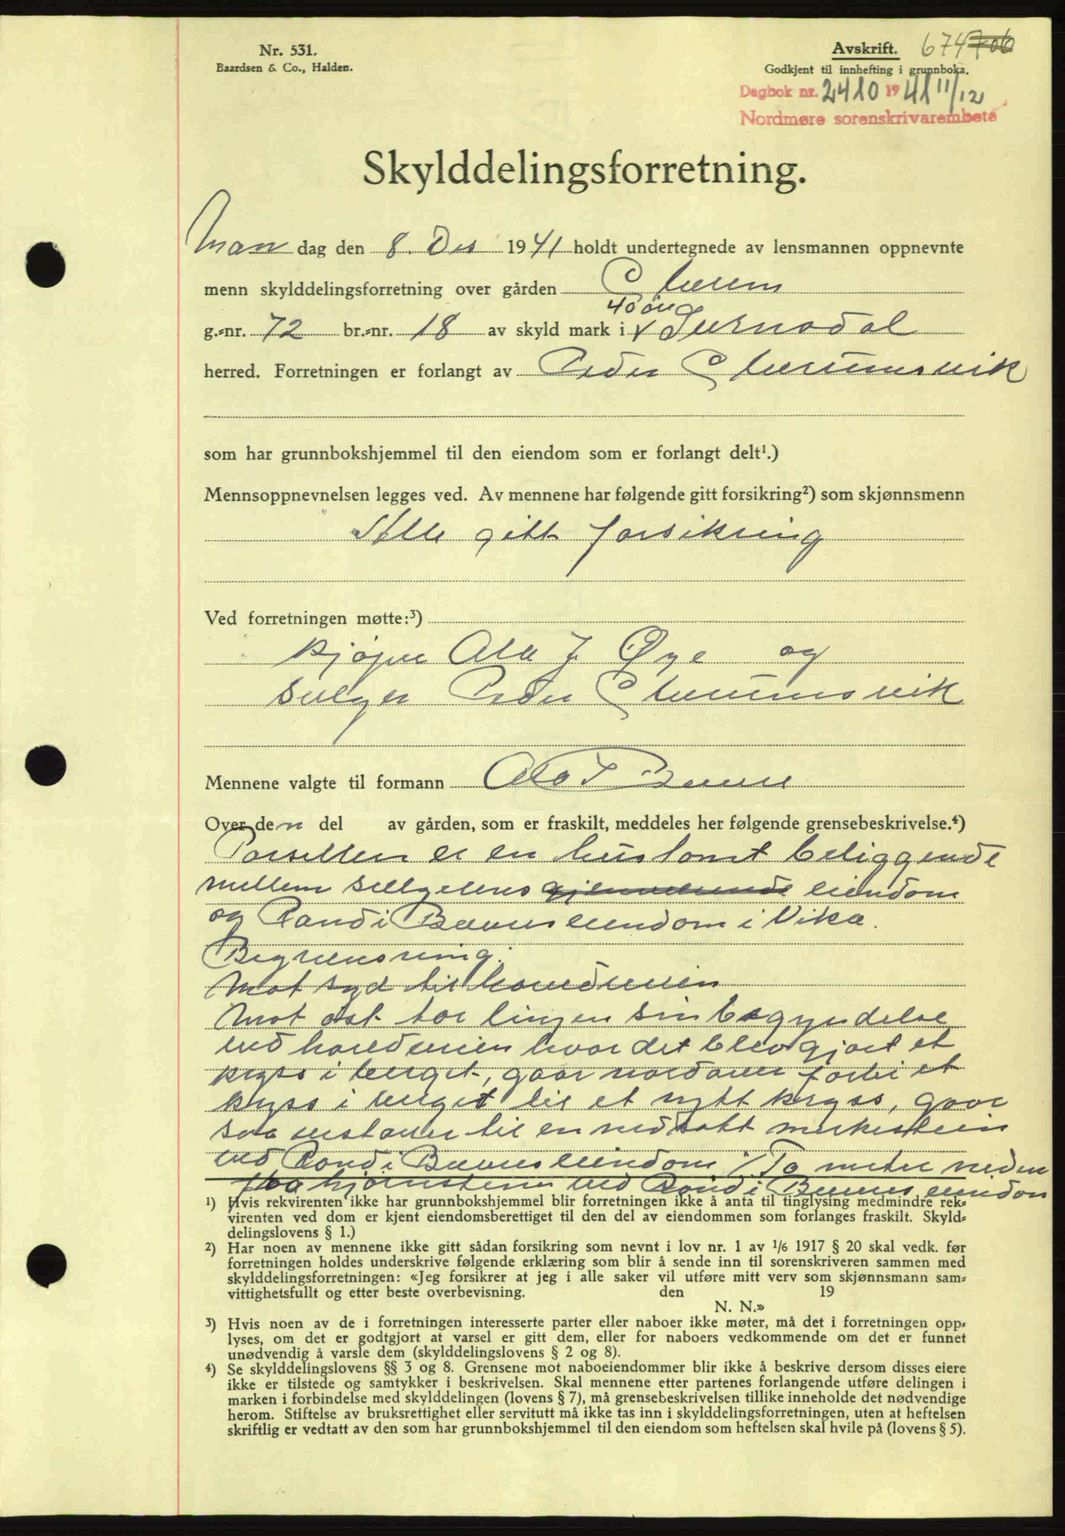 Nr. 531.
Baardsen & Co., Halden.
Avskrift. 674 706
Godkjent til innhefting i grunnboka.
Dagbok nr. 2410 1941 11/12
Nordmøre sorenskrivarembete
Skylddelingsforretning.
Man dag den 8. Des 1941 holdt undertegnede av lensmannen oppnevnte
menn skylddelingsforretning over gården Glærem
40 øre
g.-nr. 72 br.-nr. 18 av skyld mark i Surnadal
herred. Forretningen er forlangt av Peder Glærumsvik
som har grunnbokshjemmel til den eiendom som er forlangt delt¹.)
Mennsoppnevnelsen legges ved. Av mennene har følgende gitt forsikring²) som skjønnsmenn
Alle gitt forsikring
Ved forretningen møtte:³)
kjøper Ola J Øye og
selger Peder Glærumsvik
Mennene valgte til formann Ola T Bævre
Over den del av gården, som er fraskilt, meddeles her følgende grensebeskrivelse.⁴)
Parsellen er en hustomt beliggende
mellem selgerens gjenværende eiendom
og Randi Bævres eiendom i Vika.
Begrensning:
Mot syd til hovedveien
Mot øst tar linjen sin begyndelse
ved hovedveien hvor det blev gjort et
kryss i berget, gaar nordover forbi et
kryss i berget til et nytt kryss, gaar
saa vestover til en nedsatt merkestein
ved Randi Bævres eiendom 1/To meter neden
fra hjørnestein ved Randi Bævres eiendom
¹) Hvis rekvirenten ikke har grunnbokshjemmel blir forretningen ikke å anta til tinglysing medmindre rek-
virenten ved dom er kjent eiendomsberettiget til den del av eiendommen som forlanges fraskilt. Skyld-
delingslovens § 1.)
²) Har noen av mennene ikke gitt sådan forsikring som nevnt i lov nr. 1 av 1/6 1917 § 20 skal vedk. før
forretningen holdes underskrive følgende erklæring som blir å sende inn til sorenskriveren sammen med
skylddelingsforretningen: «Jeg forsikrer at jeg i alle saker vil utføre mitt verv som skjønnsmann sam-
vittighetsfullt og etter beste overbevisning. den 19
N. N.»
³) Hvis noen av de i forretningen interesserte parter eller naboer ikke møter, må det i forretningen opp-
lyses, om det er godtgjort at varsel er gitt dem, eller for naboers vedkommende om det er funnet
unødvendig å varsle dem (skylddelingslovens § 2 og 8).
⁴) Se skylddelingslovens §§ 3 og 8. Grensene mot naboeiendommer blir ikke å beskrive dersom disses eiere
ikke er tilstede og samtykker i beskrivelsen. Skal mennene etter partenes forlangende utføre delingen i
marken i forbindelse med skylddelingen (lovens § 7), må grensebeskrivelsen tillike inneholde det nødvendige
herom. Stiftelse av bruksrettighet eller servitutt må ikke tas inn i skylddelingsforretningen, uten at heftelsen
skriftlig er vedtatt av den som har grunnbokshjemmel til den eiendom som heftelsen skal hvile på (lovens § 5).